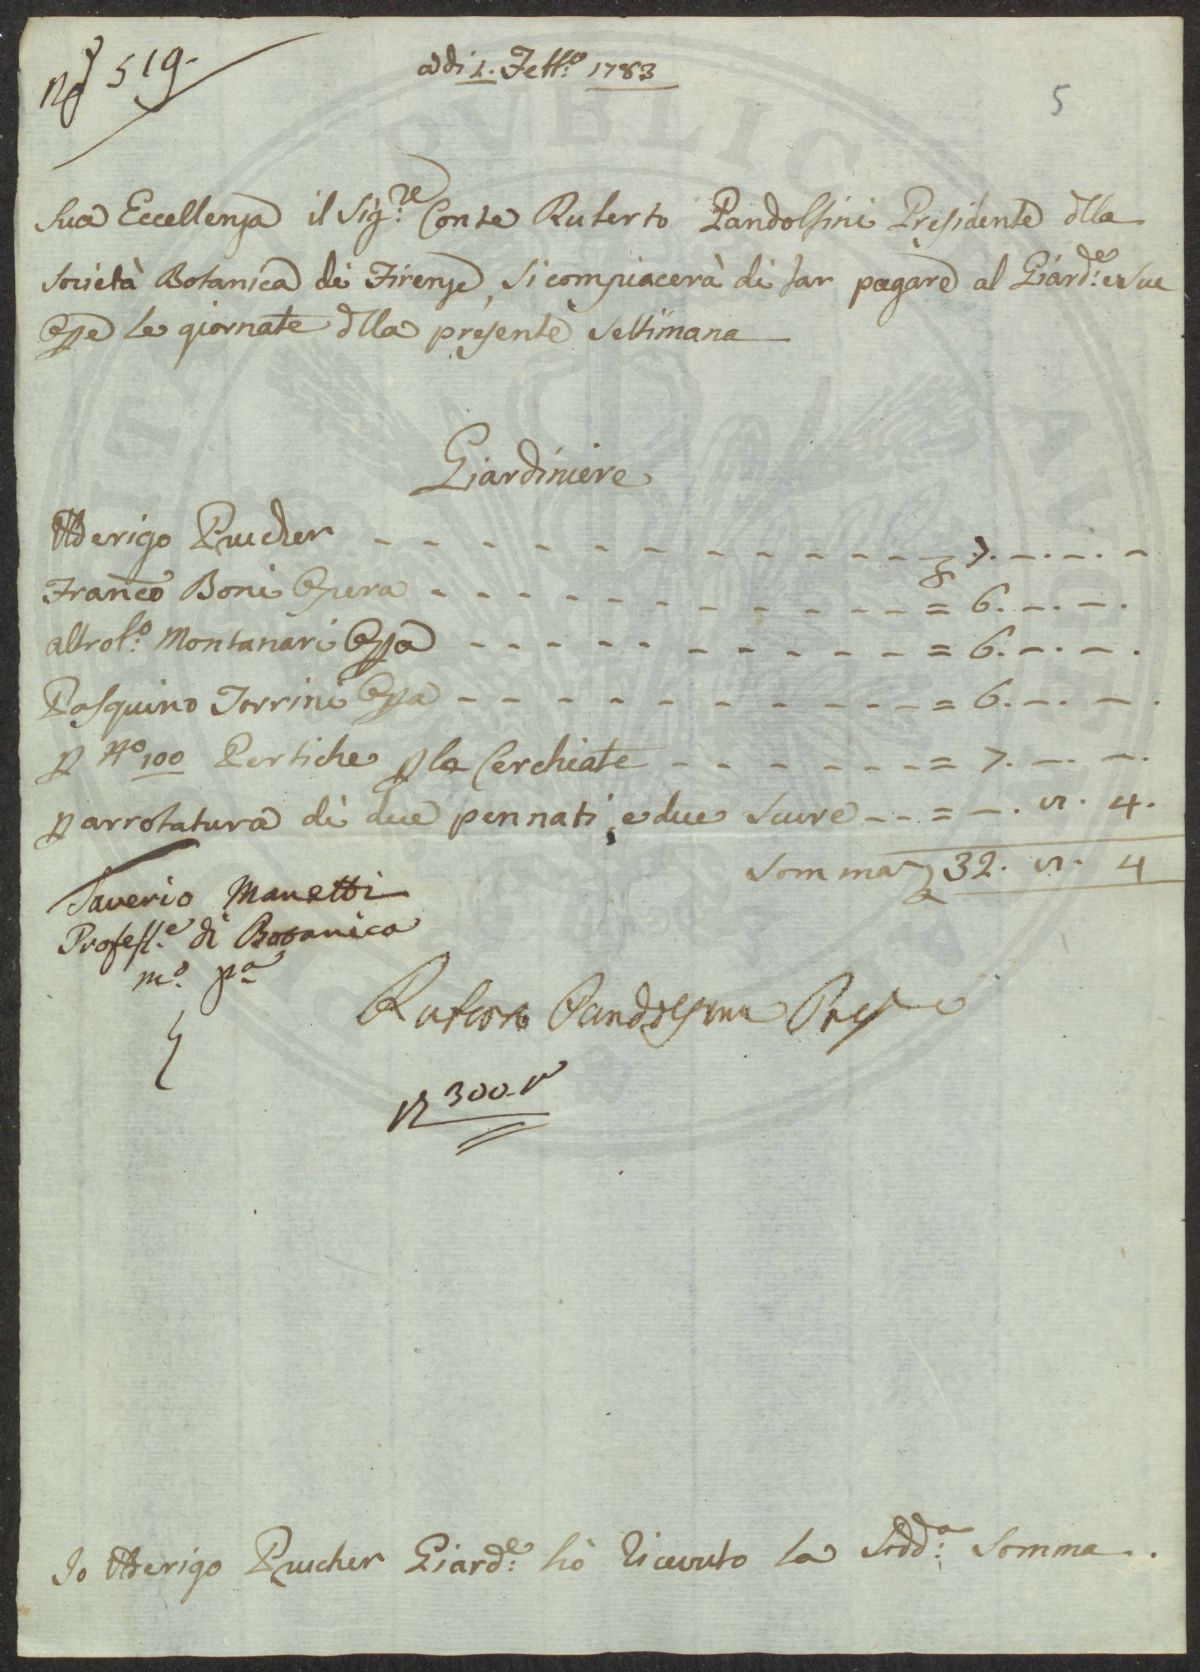 N.º 519.
adi 1. Febb.º 1783
5
Sua Eccellenza il Sig.re Conte Ruberto Pandolfini Presidente dlla
Società Botanica di Firenze, si compiacerà di far pagare al Giard.e e sue
Oppe le giornate dlla presente settimana
Giardiniere
Arrigo Prucher - - - - - - - - - - - - 7. -. -. -
Franco Boni Opera - - - - - - - - - - - = 6. -. -.
Montanari Oppa - - - - - - - - - - = 6. -. -.
Pasquino Torrini Oppa - - - - - - - - - - = 6. -. -.
p Nº 100 Pertiche p le Cerchiate - - - - - - = 7. -. -.
p arrotatura di due pennati, e due scure - - = -. 4.
Somma 32. 4
Saverio Manetti
Profess.e di Botanica
m.º p.a
Ruberto Pandolfini Pres.e
300
Io Arrigo Prucher Giard.e hò ricevuto la Sudd.a Somma.